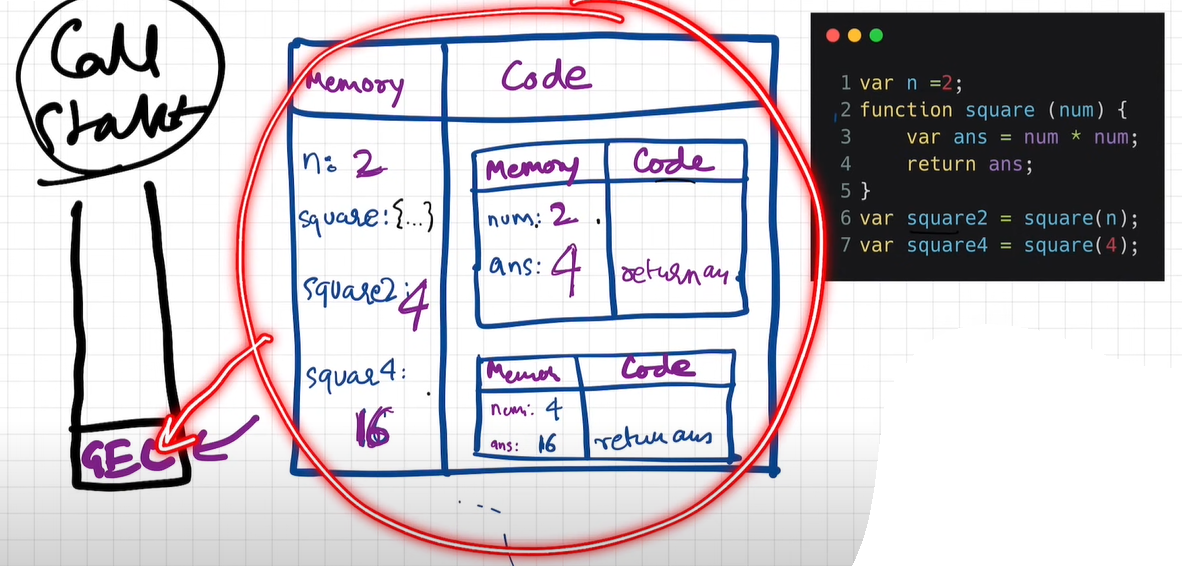 Call
Stack
GEC
Memory
Code
n: 2
square:{...}
square2: 4
squar4:
16
Memory
Code
num: 2
ans: 4
return an
Memor
Code
num: 4
ans: 16
return ans
1 var n =2;
2 function square (num) {
3 var ans = num * num;
4 return ans;
5 }
6 var square2 = square(n);
7 var square4 = square(4);